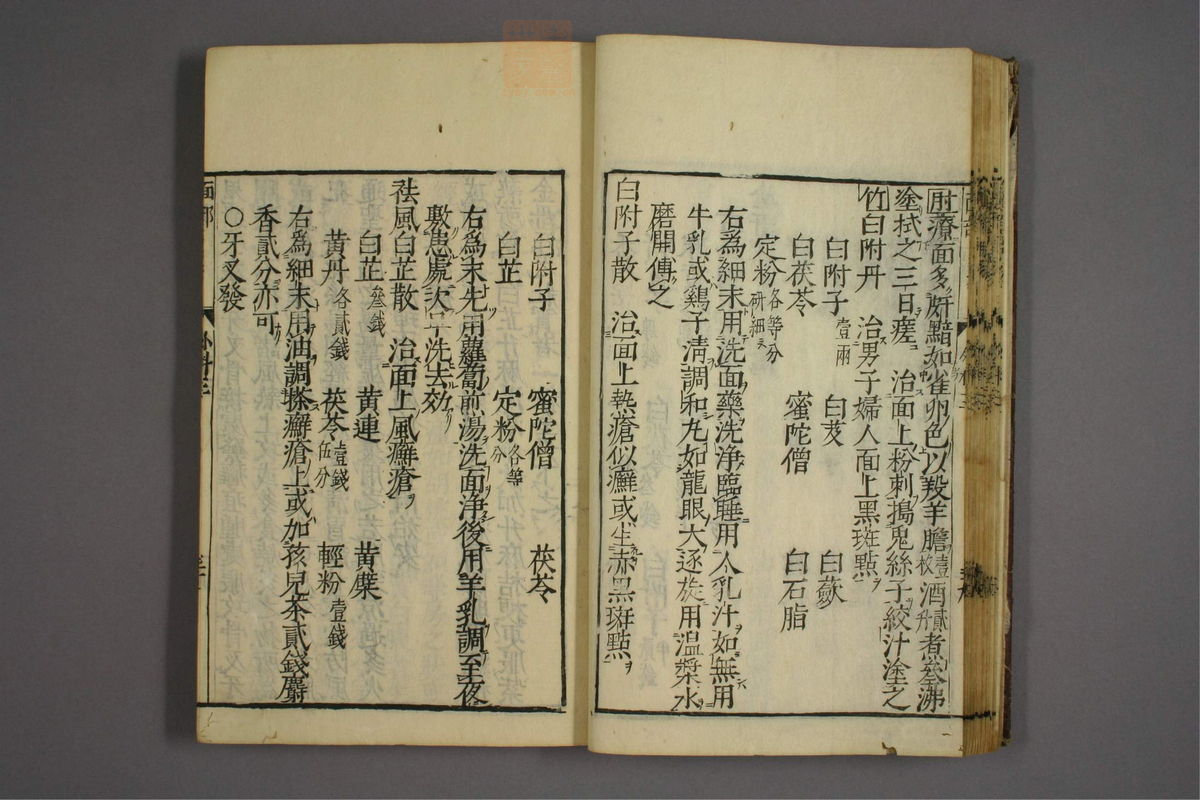 肘療面多䵟黯如雀卵色以羖羊膽壹枚酒貳升煮叄沸
塗拭之三日瘥 治面上粉刺搗兎絲子絞汁塗之
竹白附丹 治男子婦人面上黑斑點
白附子壹兩 白芨 白蘞
白茯苓 蜜陀僧 白石脂
定粉各等分研細
右爲細末用洗面藥洗淨臨睡用人乳汁如無用
牛乳或鷄子淸調和丸如龍眼大逐旋用温漿水
磨開傅之
白附子散 治面上熱瘡似癬或生赤黑斑點
白附子 蜜陀僧 茯苓
白芷 定粉各等分
右爲末先用蘿蔔煎湯洗面淨後用羊乳調至夜
敷患處次早洗去效
祛風白芷散 治面上風癬瘡
白芷叄錢 黄連 黄蘗
黄丹各貳錢 茯苓壹錢伍分 輕粉壹錢
右爲細末用油調搽癬瘡上或加孩兒茶貳錢麝
香貳分亦可
○牙叉發
面部